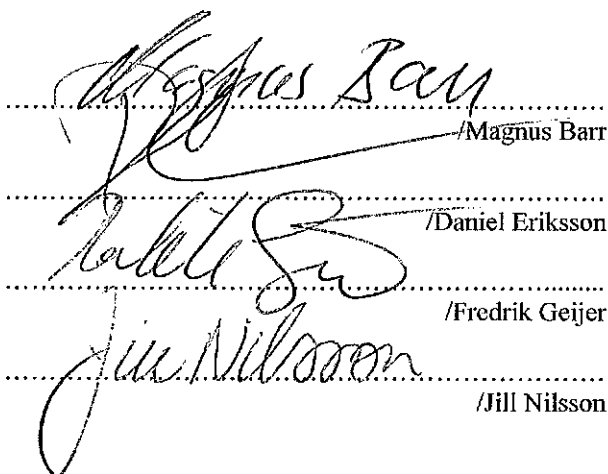 Magnus Barr
/Magnus Barr
/Daniel Eriksson
/Fredrik Geijer
Jill Nilsson
/Jill Nilsson